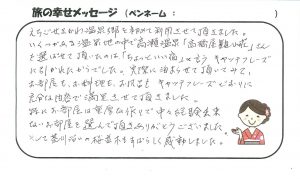 旅の幸せメッセージ (ペンネーム: )
えちごせきかわ温泉郷を初めて利用させて頂きました。
いくつかある温泉地の中で高瀬温泉「高橋屋観山荘」さん
を選ばせて頂いたのは「ちょっといい宿」と言うキャッチフレーズ
に引かれたからでした。実際に泊まらせて頂いてみて、
お部屋も、お料理も、お風呂もキャッチフレーズどおりに
充分な内容で満足させて頂きました。
特にお部屋は重厚な作りで中々経験出来
ないお部屋を選んで頂きありがとうございました。
そして荒川沿いの桜並木もすばらしく感動しました。